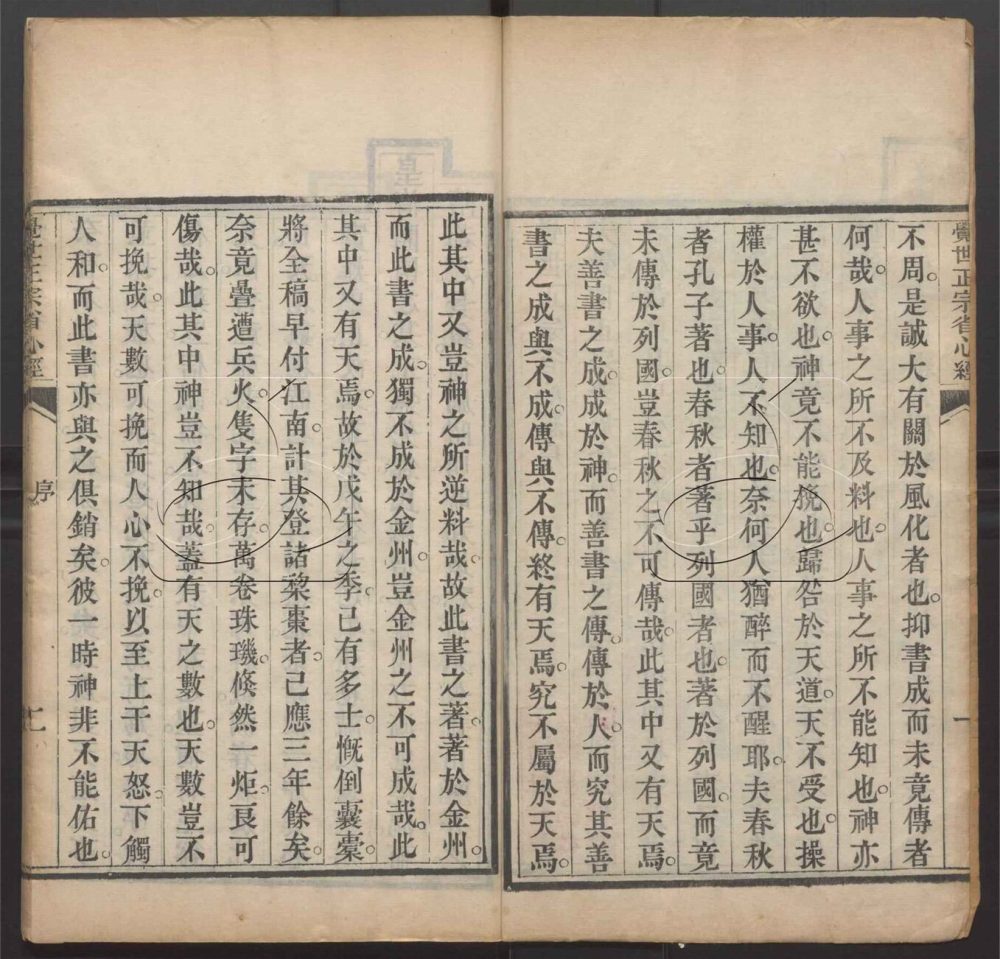 覺世正宗省心經
不周。是誠大有關於風化者也。抑書成而未竟傳者
何哉。人事之所不及料也。人事之所不能知也。神亦
甚不欲也。神竟不能挽也。歸咎於天道。天不受也。操
權於人事。人不知也。奈何人猶醉而不醒耶。夫春秋
者孔子著也。春秋者著乎列國者也。著於列國。而竟
未傳於列國。豈春秋之不可傳哉。此其中又有天焉。
夫善書之成。成於神。而善書之傳。傳於人。而究其善
書之成與不成。傳與不傳。終有天焉。究不屬於天焉。
此其中又豈神之所逆料哉。故此書之著。著於金州。
而此書之成。獨不成於金州。豈金州之不可成哉。此
其中又有天焉。故於戊午之季。已有多士。慨倒囊橐。
將全稿早付江南。計其登諸棃棗者。已應三年餘矣。
奈竟疊遭兵火。隻字未存。萬卷珠璣。倐然一炬。良可
傷哉。此其中神豈不知哉。蓋有天之數也。天數豈不
可挽哉。天數可挽而人心不挽。以至上干天怒。下觸
人和。而此書亦與之俱銷矣。彼一時神非不能佑也。
覺世正宗省心經
序